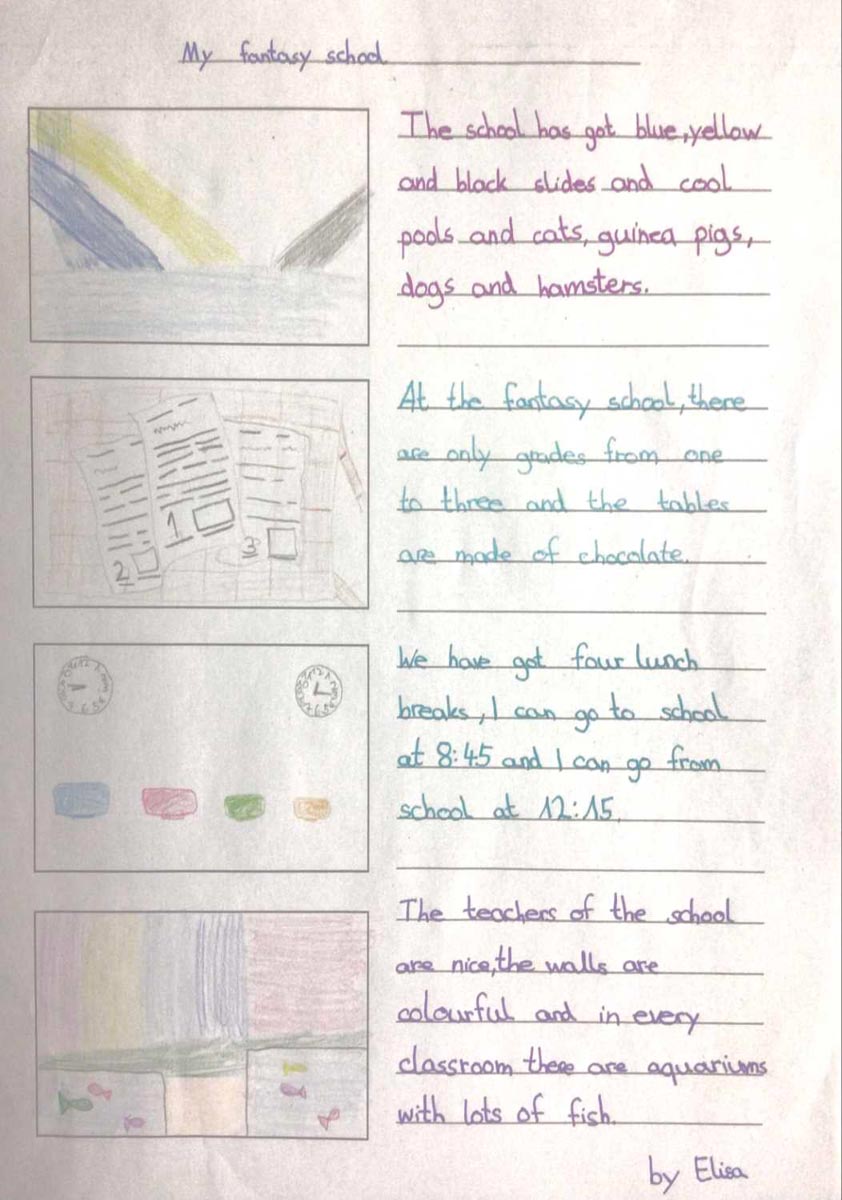 My fantasy school
The school has got blue, yellow
and black slides and cool
pools and cats, guinea pigs,
dogs and hamsters.
At the fantasy school, there
are only grades from one
to three and the tables
are made of chocolate.
2
1
3
We have got four lunch
breaks, I can go to school
at 8:45 and I can go from
school at 12:15.
The teachers of the school
are nice, the walls are
colourful and in every
classroom there are aquariums
with lots of fish.
by Elisa